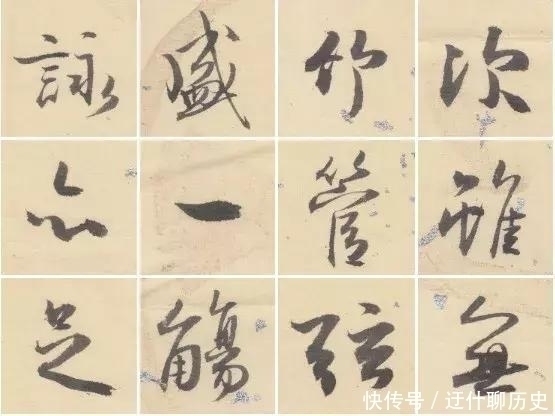 次雖無
竹管弦
盛一觴
詠亦足
快传号／迂什聊历史